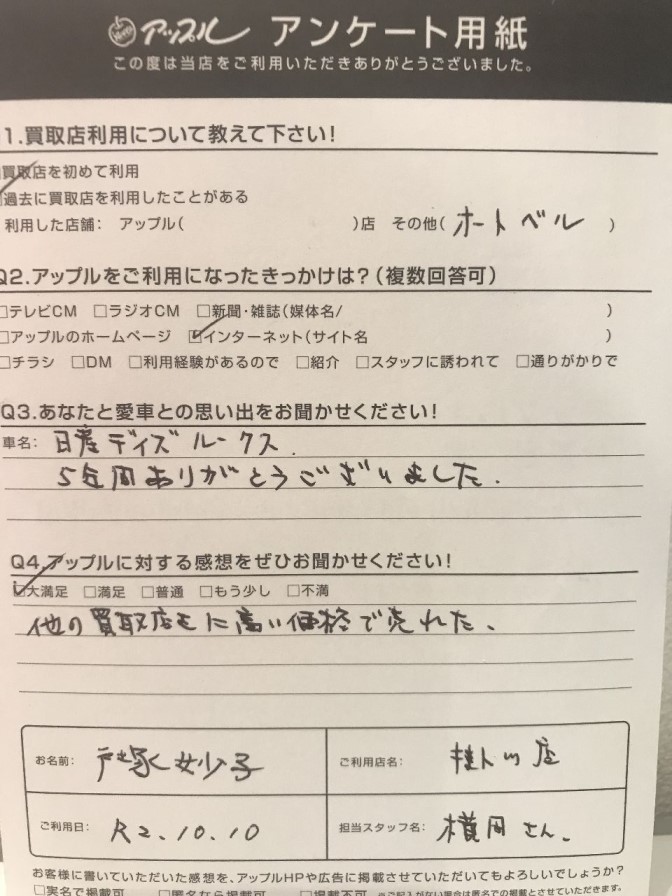 アップル アンケート用紙
この度は当店をご利用いただきありがとうございました。
1.買取店利用について教えて下さい!
買取店を初めて利用
過去に買取店を利用したことがある
利用した店舗: アップル( )店 その他( オートベル )
Q2.アップルをご利用になったきっかけは?(複数回答可)
□テレビCM □ラジオCM □新聞・雑誌(媒体名/ )
□アップルのホームページ ☑インターネット(サイト名 )
□チラシ □DM □利用経験があるので □紹介 □スタッフに誘われて □通りがかりで
Q3.あなたと愛車との思い出をお聞かせください!
車名: 日産デイズルークス.
5年間ありがとうございました.
Q4.アップルに対する感想をぜひお聞かせください!
☑大満足 □満足 □普通 □もう少し □不満
他の買取店もに高い価格で売れた、
お名前: 戸塚妙子
ご利用店名: 桂川店
ご利用日: R2.10.10
担当スタッフ名: 横田さん.
お客様に書いていただいた感想を、アップルHPや広告に掲載させていただいてもよろしいでしょうか?
□実名で掲載可 □匿名なら掲載可 □掲載不可 ※ご記入がない場合は匿名での掲載とさせていただきます。